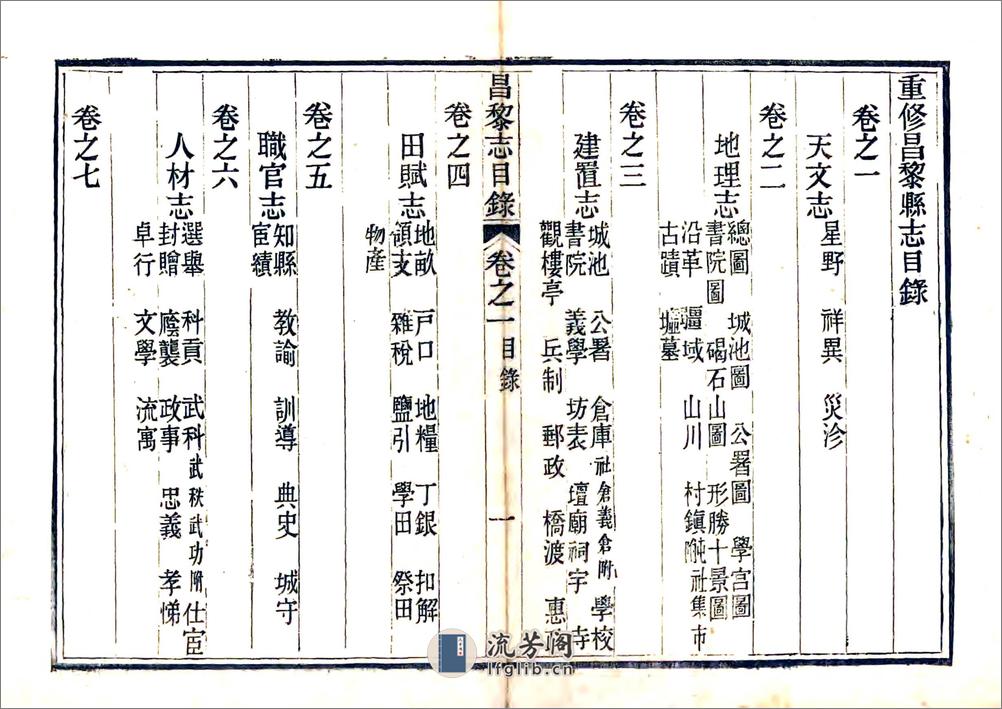 重修昌黎縣志目錄
卷之一
天文志
星野 祥異 災沴
卷之二
地理志
總圖 城池圖 公署圖 學宫圖
書院圖 碣石山圖 形勝十景圖
沿革 疆域 山川 村鎮附社集市
古蹟 墟墓
卷之三
建置志
城池 公署 倉庫社倉義倉附 學校
書院 義學 坊表 壇廟祠宇 寺
觀樓亭 兵制 郵政 橋渡 惠
昌黎志目錄 卷之一目錄 一
卷之四
田賦志
地畝 戸口 地糧 丁銀 扣解
領支 雜稅 鹽引 學田 祭田
物產
卷之五
職官志
知縣 教諭 訓導 典史 城守
宦績
卷之六
人材志
選舉 科貢 武科武秩武功附 仕宦
封贈 廕襲 政事 忠義 孝悌
卓行 文學 流寓
卷之七
流芳阁
lfglib.com